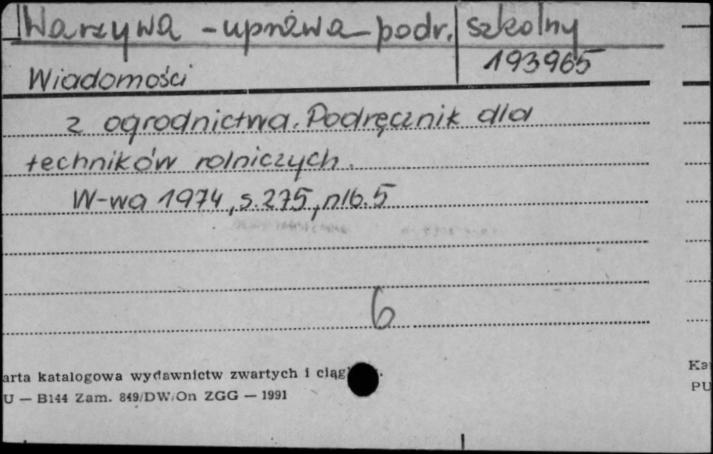 Warzywa - uprawa - podr. szkolny
193965
Wiadomości
z ogrodnictwa. Podręcznik dla
techników rolniczych.
W-wa 1974, s. 275, nlb. 5
6
arta katalogowa wydawnictw zwartych i ciąg
U — B144 Zam. 849/DW/On ZGG — 1991
Ka
PU